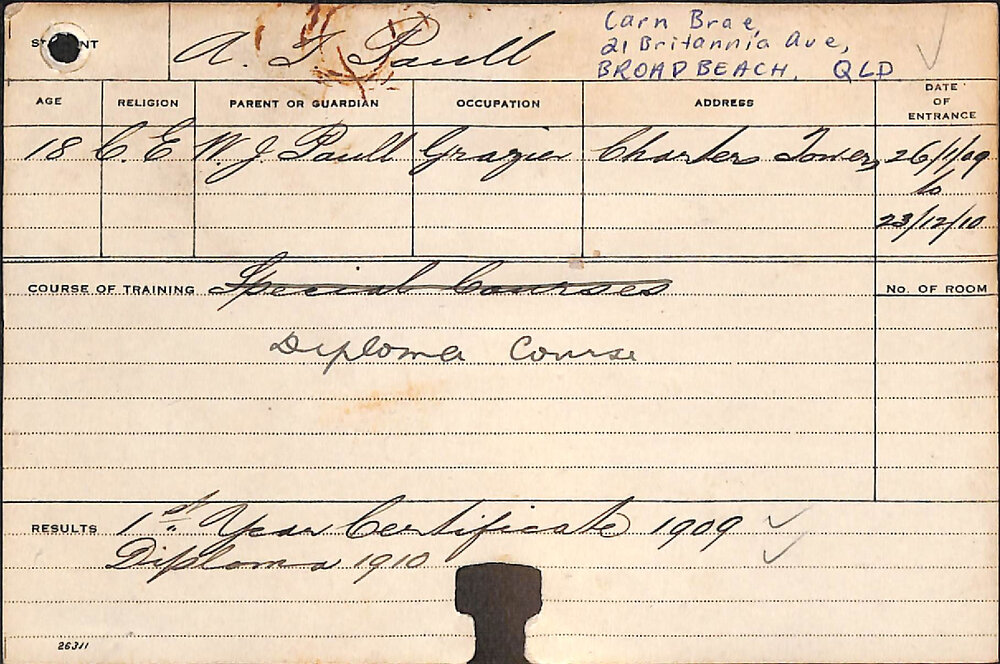 STUDENT A. T Paull
Carn Brae,
21 Britannia Ave,
BROADBEACH. QLD
AGE RELIGION PARENT OR GUARDIAN OCCUPATION ADDRESS DATE OF ENTRANCE
18 C. E W. J Paull Grazier Charters Towers 26/1/09
to
23/12/10
COURSE OF TRAINING Special Courses
No. OF ROOM
Diploma Course
RESULTS 1st Year Certificate 1909
Diploma 1910
26311